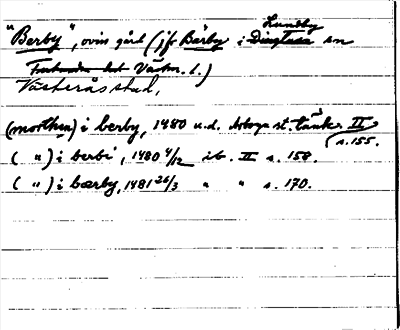 Lundby
"Berby", oviss gård (jfr Bärby i Dingtuna sn
Västm. l.)
Västerås stad,
(morthen) i berby, 1480 u.d. Arboga st. tänk. II
s. 155.
( " ) i berbi, 1480 4/12 ib. II s. 158.
( " ) i bærby, 1481 26/3 " " s. 170.